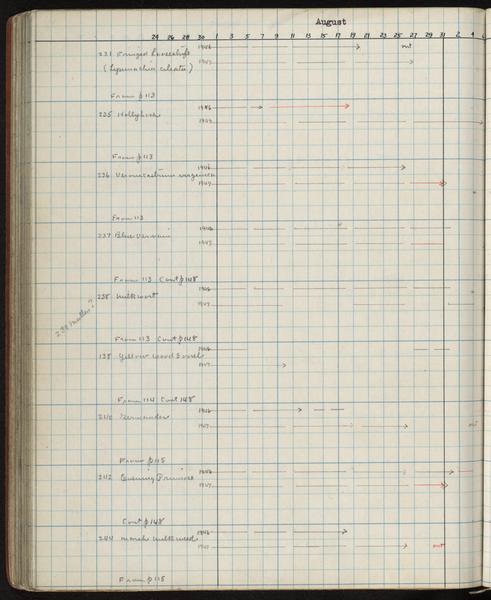 August
24 26 28 30 1 3 5 7 9 11 13 15 17 19 21 23 25 27 29 31 2 4 6
231 Fringed Loosestrife 1946 out
(Lysimachia ciliata) 1947
From p 113
235 Hollyhock 1946
1947
From p 113
236 Veronicastrum virginica 1946
1947
From 113
237 Blue Vervain 1946
1947
From 113 Cont p 148
238 Milkwort 1946
1947
239 Mallow?
From 113 Cont p 148
138 Yellow Wood Sorrel 1946
1947
From 114 Cont 148
240 Germander 1946
1947 out
From p 115
242 Evening Primrose 1946
1947
Cont p 148
244 Marsh milkweed 1946
1947 out
From p 115